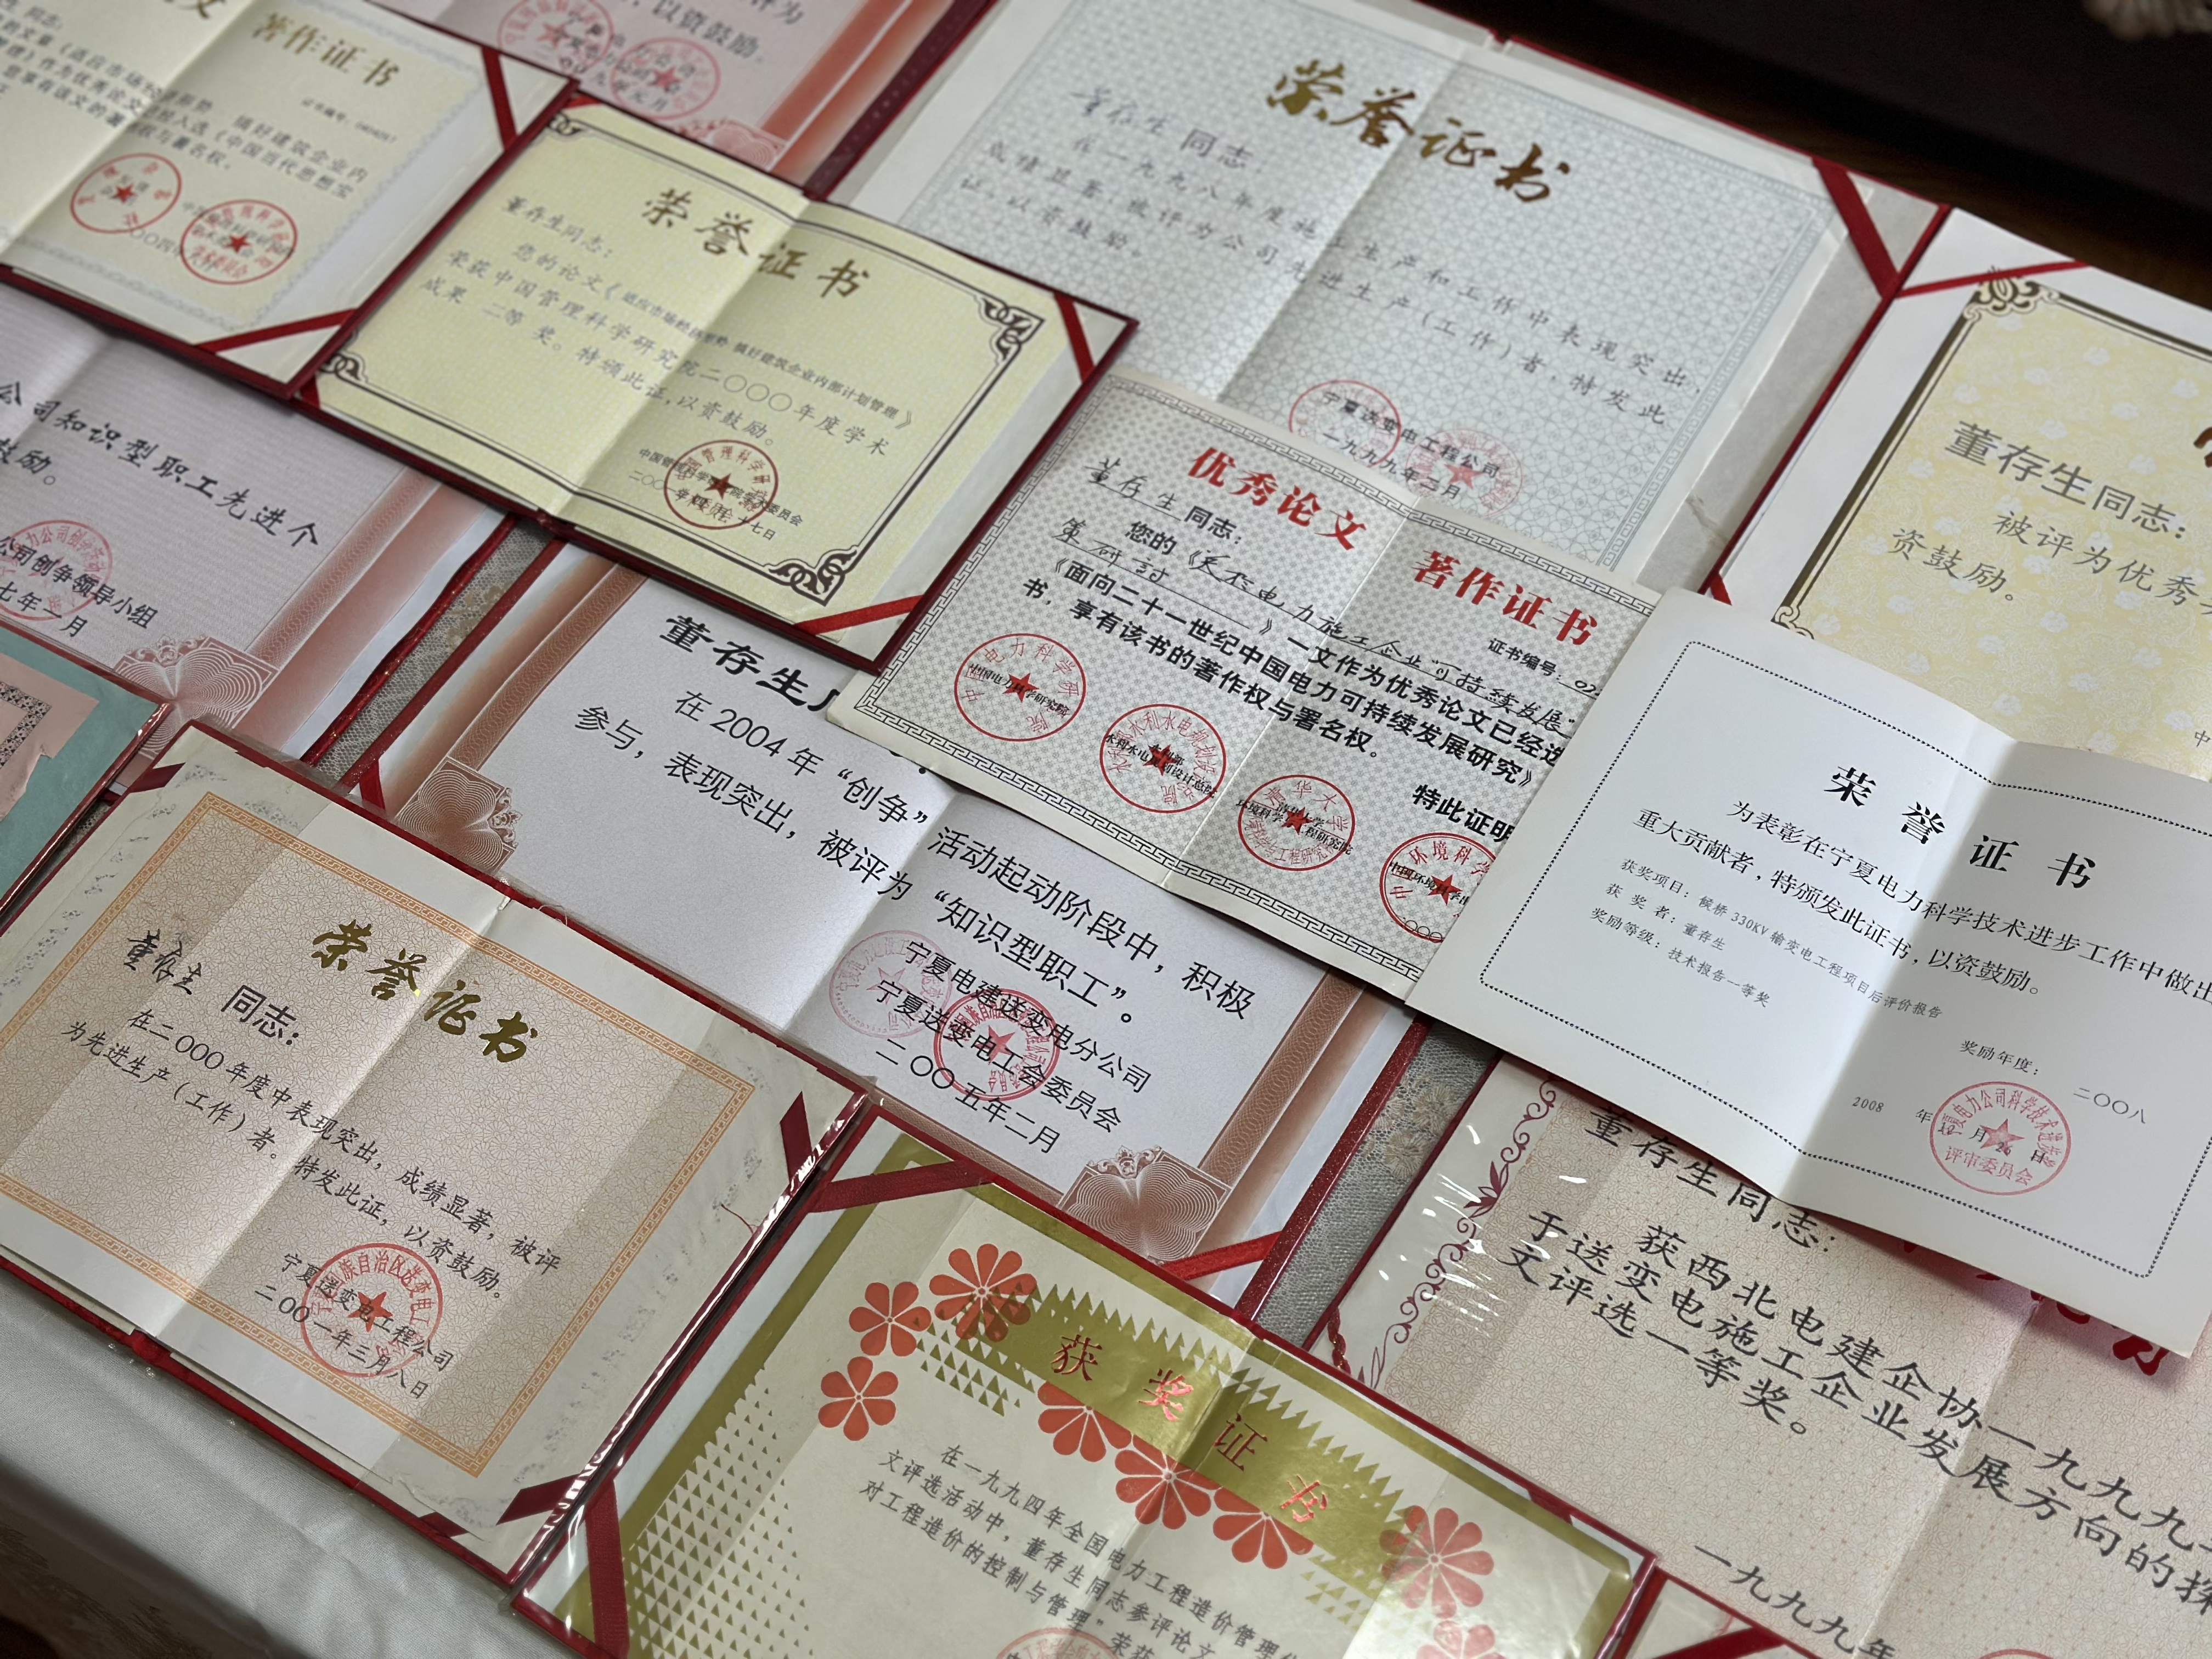 著作证书
搞好建筑企业内
入选《中国当代思想宝
权与署名权。
以资鼓励。
荣誉证书
董存生同志:
您的论文《适应市场经济形势 搞好建筑企业内部计划管理》
荣获中国管理科学研究院二〇〇〇年度学术
成果 二等 奖。特颁此证,以资鼓励。
荣誉证书
董存生 同志:
在一九九八年度施工生产和工作中表现突出,
成绩显著,被评为公司先进生产(工作)者,特发此
证,以资鼓励。
宁夏送变电工程公司
一九九九年二月
董存生同志:
被评为优秀
资鼓励。
公司知识型职工先进个
鼓励。
公司创争领导小组
七年一月
优秀论文 著作证书
证书编号:
董存生 同志:
您的《关于电力施工企业“可持续发展”
策研讨 》一文作为优秀论文已经选
《面向二十一世纪中国电力可持续发展研究》
书,享有该书的著作权与署名权。
特此证明
荣誉证书
为表彰在宁夏电力科学技术进步工作中做出
重大贡献者,特颁发此证书,以资鼓励。
获奖项目:候桥 330KV 输变电工程项目后评价报告
获 奖 者:董存生
奖励等级:技术报告一等奖
奖励年度: 二〇〇八
2008 年 12 月 26 日
评审委员会
董存生
在 2004 年“创争”活动起动阶段中,积极
参与,表现突出,被评为“知识型职工”。
宁夏电建送变电分公司
宁夏送变电工会委员会
二〇〇五年二月
荣誉证书
董存生 同志:
在二〇〇〇年度中表现突出,成绩显著,被评
为先进生产(工作)者。特发此证,以资鼓励。
宁夏送变电工程公司
二〇〇一年三月八日
获奖证书
在一九九四年全国电力工程造价管理
文评选活动中,董存生同志参评论文
对工程造价的控制与管理”荣获
董存生同志:
获西北电建企协一九九九
于送变电施工企业发展方向的探
文评选一等奖。
一九九九年